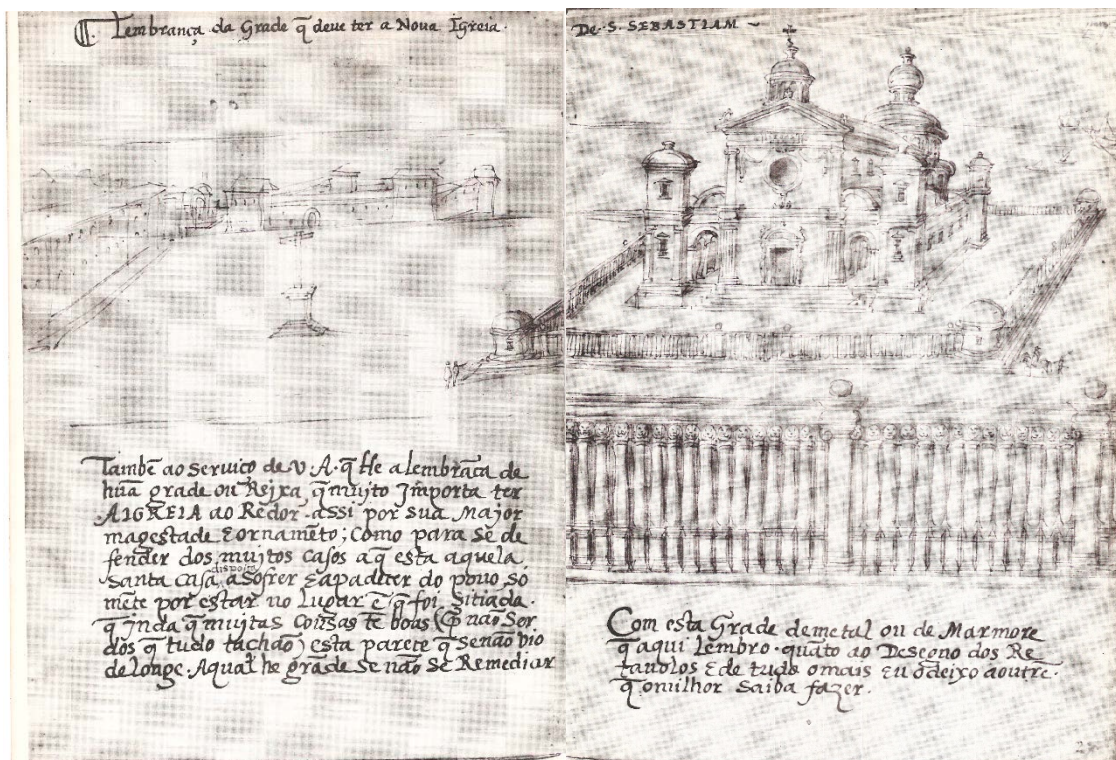 Lembrança da Grade q̃ deue ter a Noua Igreia.
Tambẽ ao seruiço de V. A. q̃ He a lembrãça de
hũa grade ou Reixa q̃ mujto Jmporta ter
A IGREIA ao Redor. assi por sua Major
magestade & ornamẽto; Como para se de
fender dos mujtos casos a q̃ esta aquela
disposta
Santa Casa, a Sofrer & a padecer do pouo so
mẽte por estar no Lugar ẽ q̃ foi sitiada.
q̃ jnda q̃ mujtas Cousas tẽ boas (q̃ não Ser
dos q̃ tudo tachão) esta pareçe q̃ se não vio
de Longe. A qual he grade se não se Remediar
De. S. SEBASTIAM ~
Com esta Grade de metal ou de Marmore
q̃ aqui Lembro. quãto ao Deseono dos Re
tauolos & de tudo o mais Eu o deixo a outrẽ.
q̃ o milhor Saiba fazer.
2